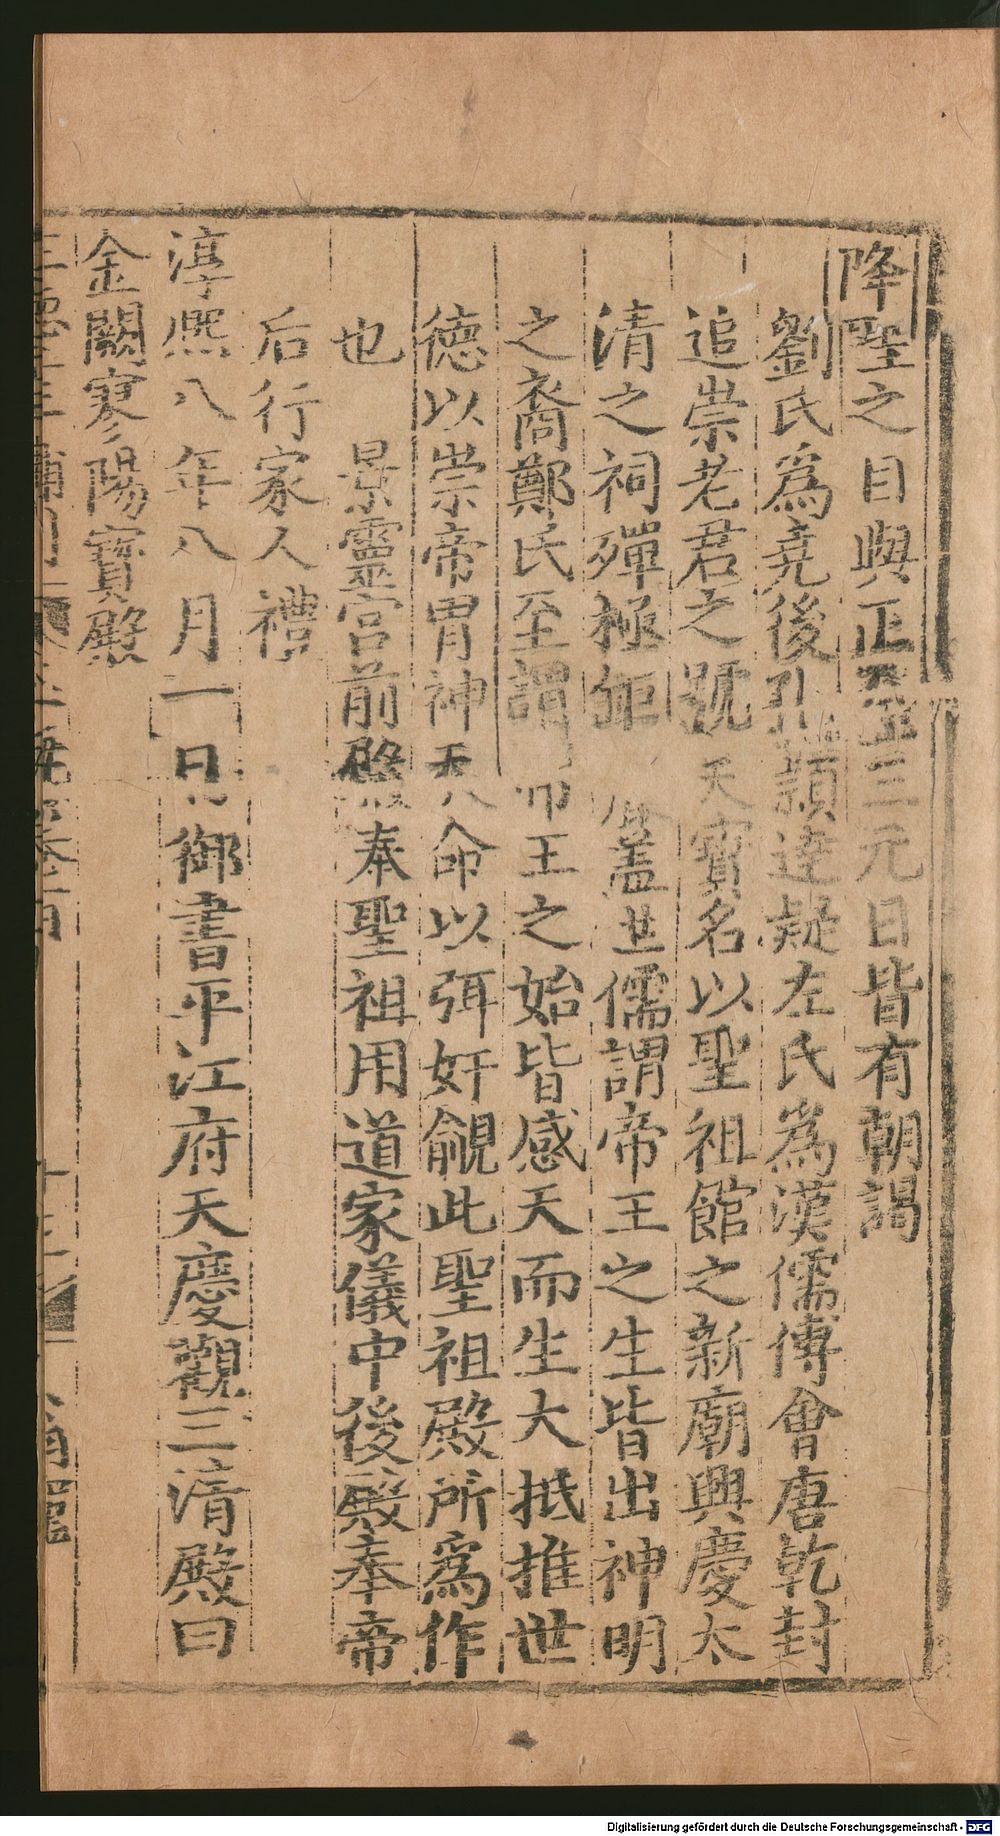 降聖之目與正至三元日皆有朝謁
劉氏為堯後孔穎達疑左氏為漢儒傅會唐乾封
追崇老君之號天寶名以聖祖館之新廟興慶太
清之祠殫極鉅 蓋世儒謂帝王之生皆出神明
之裔鄭氏至謂 王之始皆感天而生大抵推世
德以崇帝胄神天命以弭奸覦此聖祖殿所為作
也 景靈宮前殿奉聖祖用道家儀中後殿奉帝
后行家人禮
淳熙八年八月一日御書平江府天慶觀三清殿曰
金闕寥陽寶殿
Digitalisierung gefördert durch die Deutsche Forschungsgemeinschaft - DFG